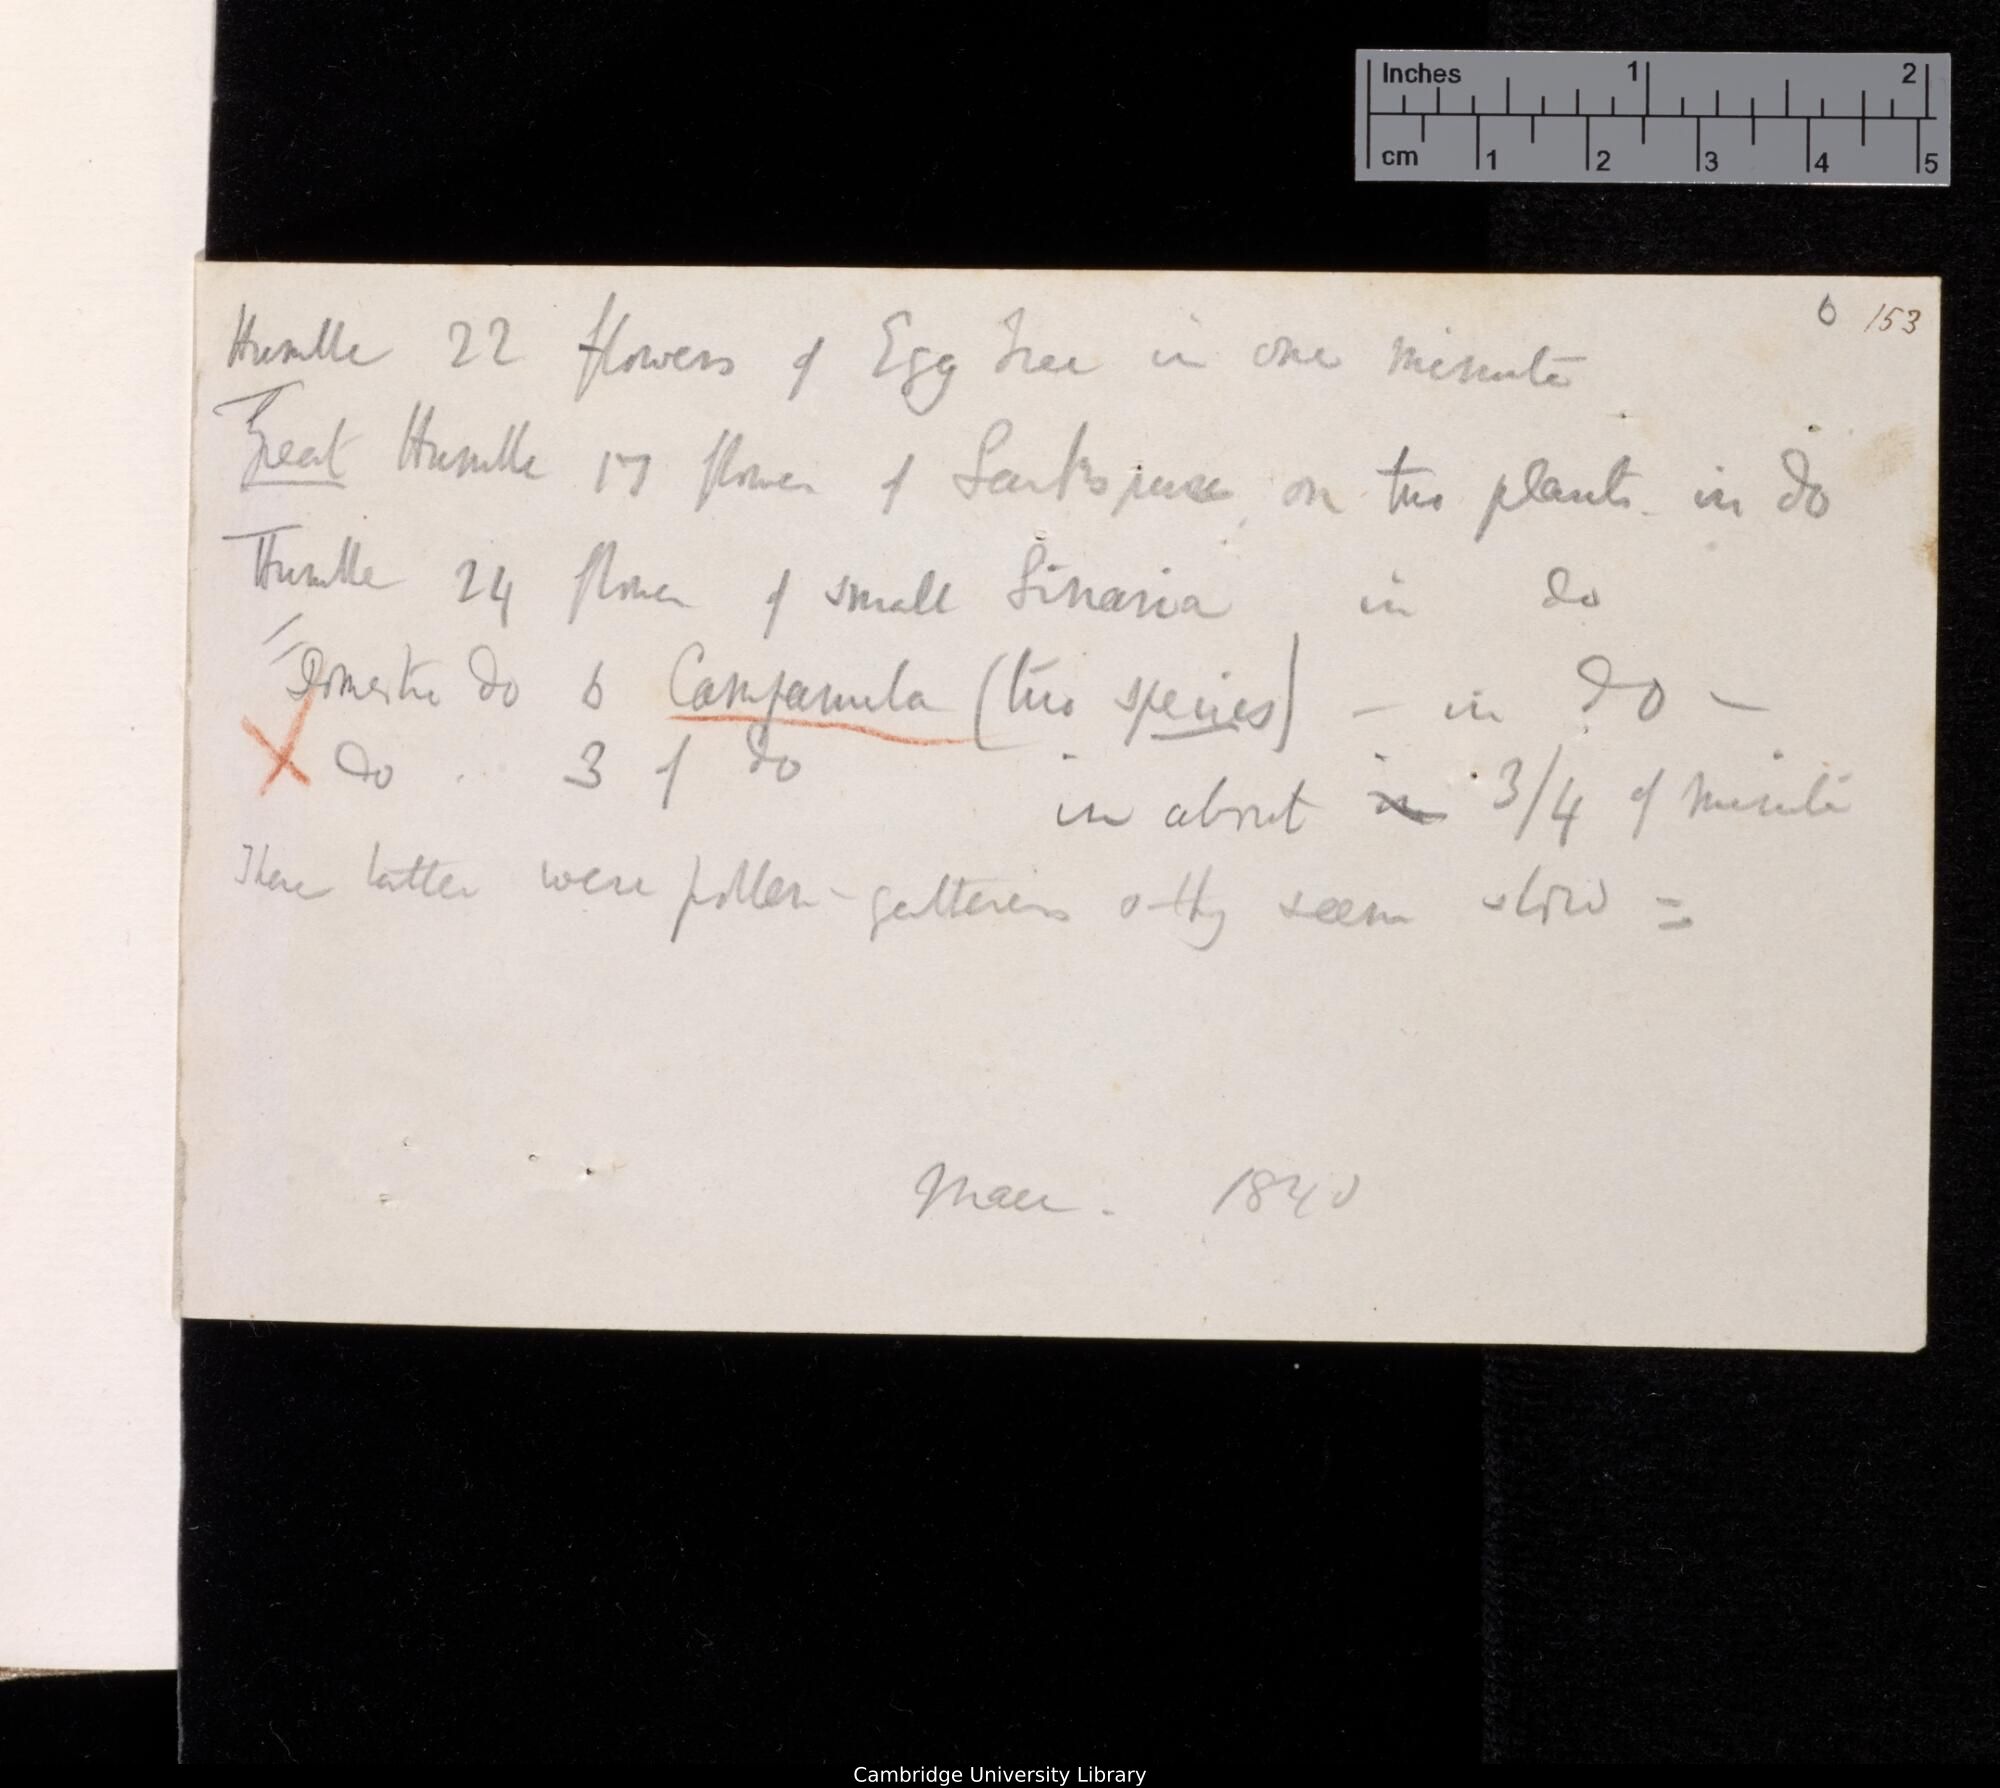 Inches 1 2
cm 1 2 3 4 5
6 153
Humble 22 flowers of Egg Tree in one minute
Great Humble 17 flower of Larkspur, on two plants. in do
Humble 24 flower of small Linaria in do
Domestic do 6 Campanula (two species) — in do —
X do 3 of do in about in 3/4 of minute
These latter were pollen-gatherers & they seem slow =
Maer. 1840
Cambridge University Library